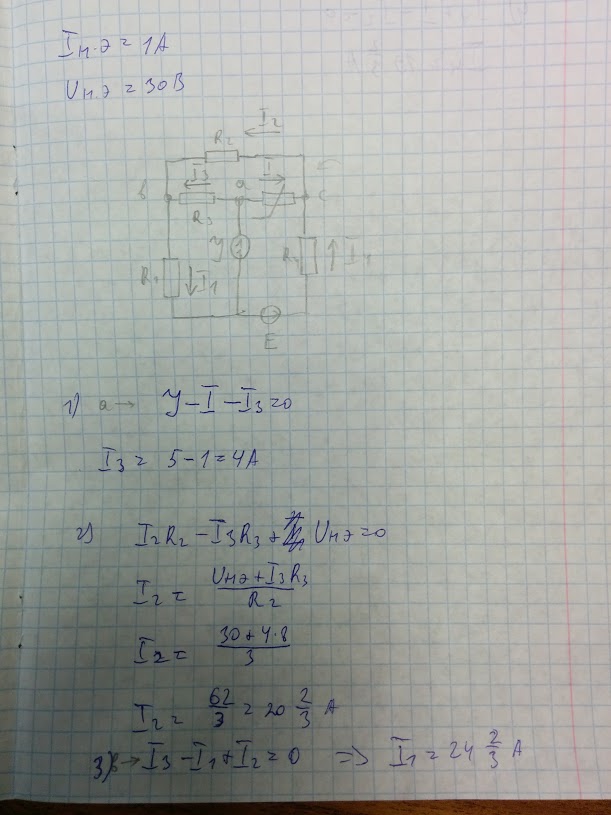 Iн.э = 1А
Uн.э = 30В
R2 I2
в I3 a I c
R3
R1 I1 J R4 I4
E
1) a → J - I - I3 = 0
I3 = 5 - 1 = 4А
2) I2R2 - I3R3 + Uнэ = 0
I2 = Uнэ + I3R3 / R2
I2 = 30 + 4·8 / 3
I2 = 62/3 = 20 2/3 А
3) в → I3 - I1 + I2 = 0 => I1 = 24 2/3 А